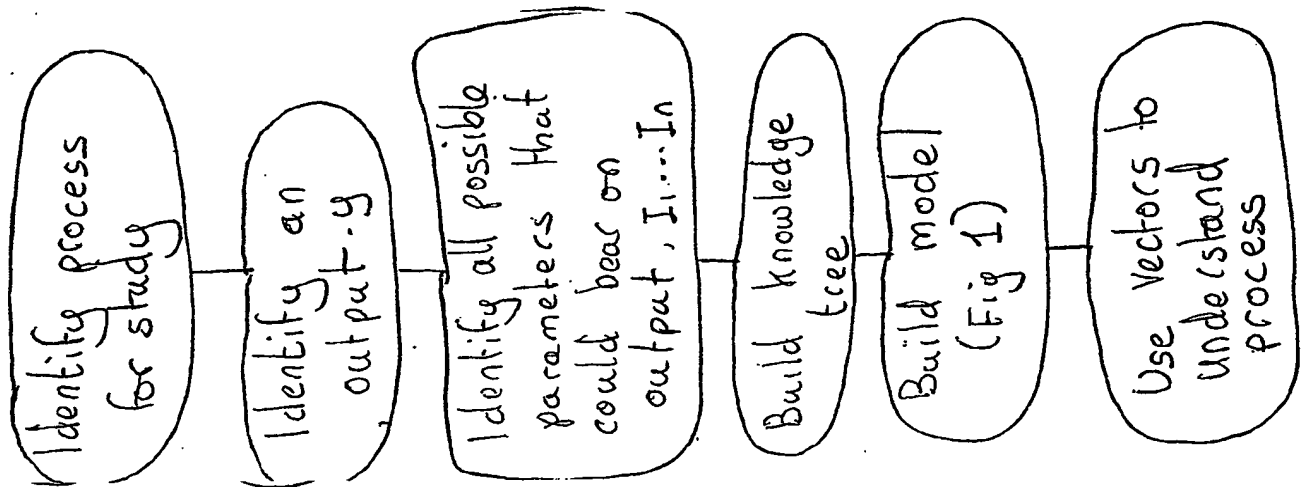 Identify process
for study
Identify an
output-y
Identify all possible
parameters that
could bear on
output, I1....In
Build knowledge
tree
Build model
(Fig 1)
Use Vectors to
Understand
process